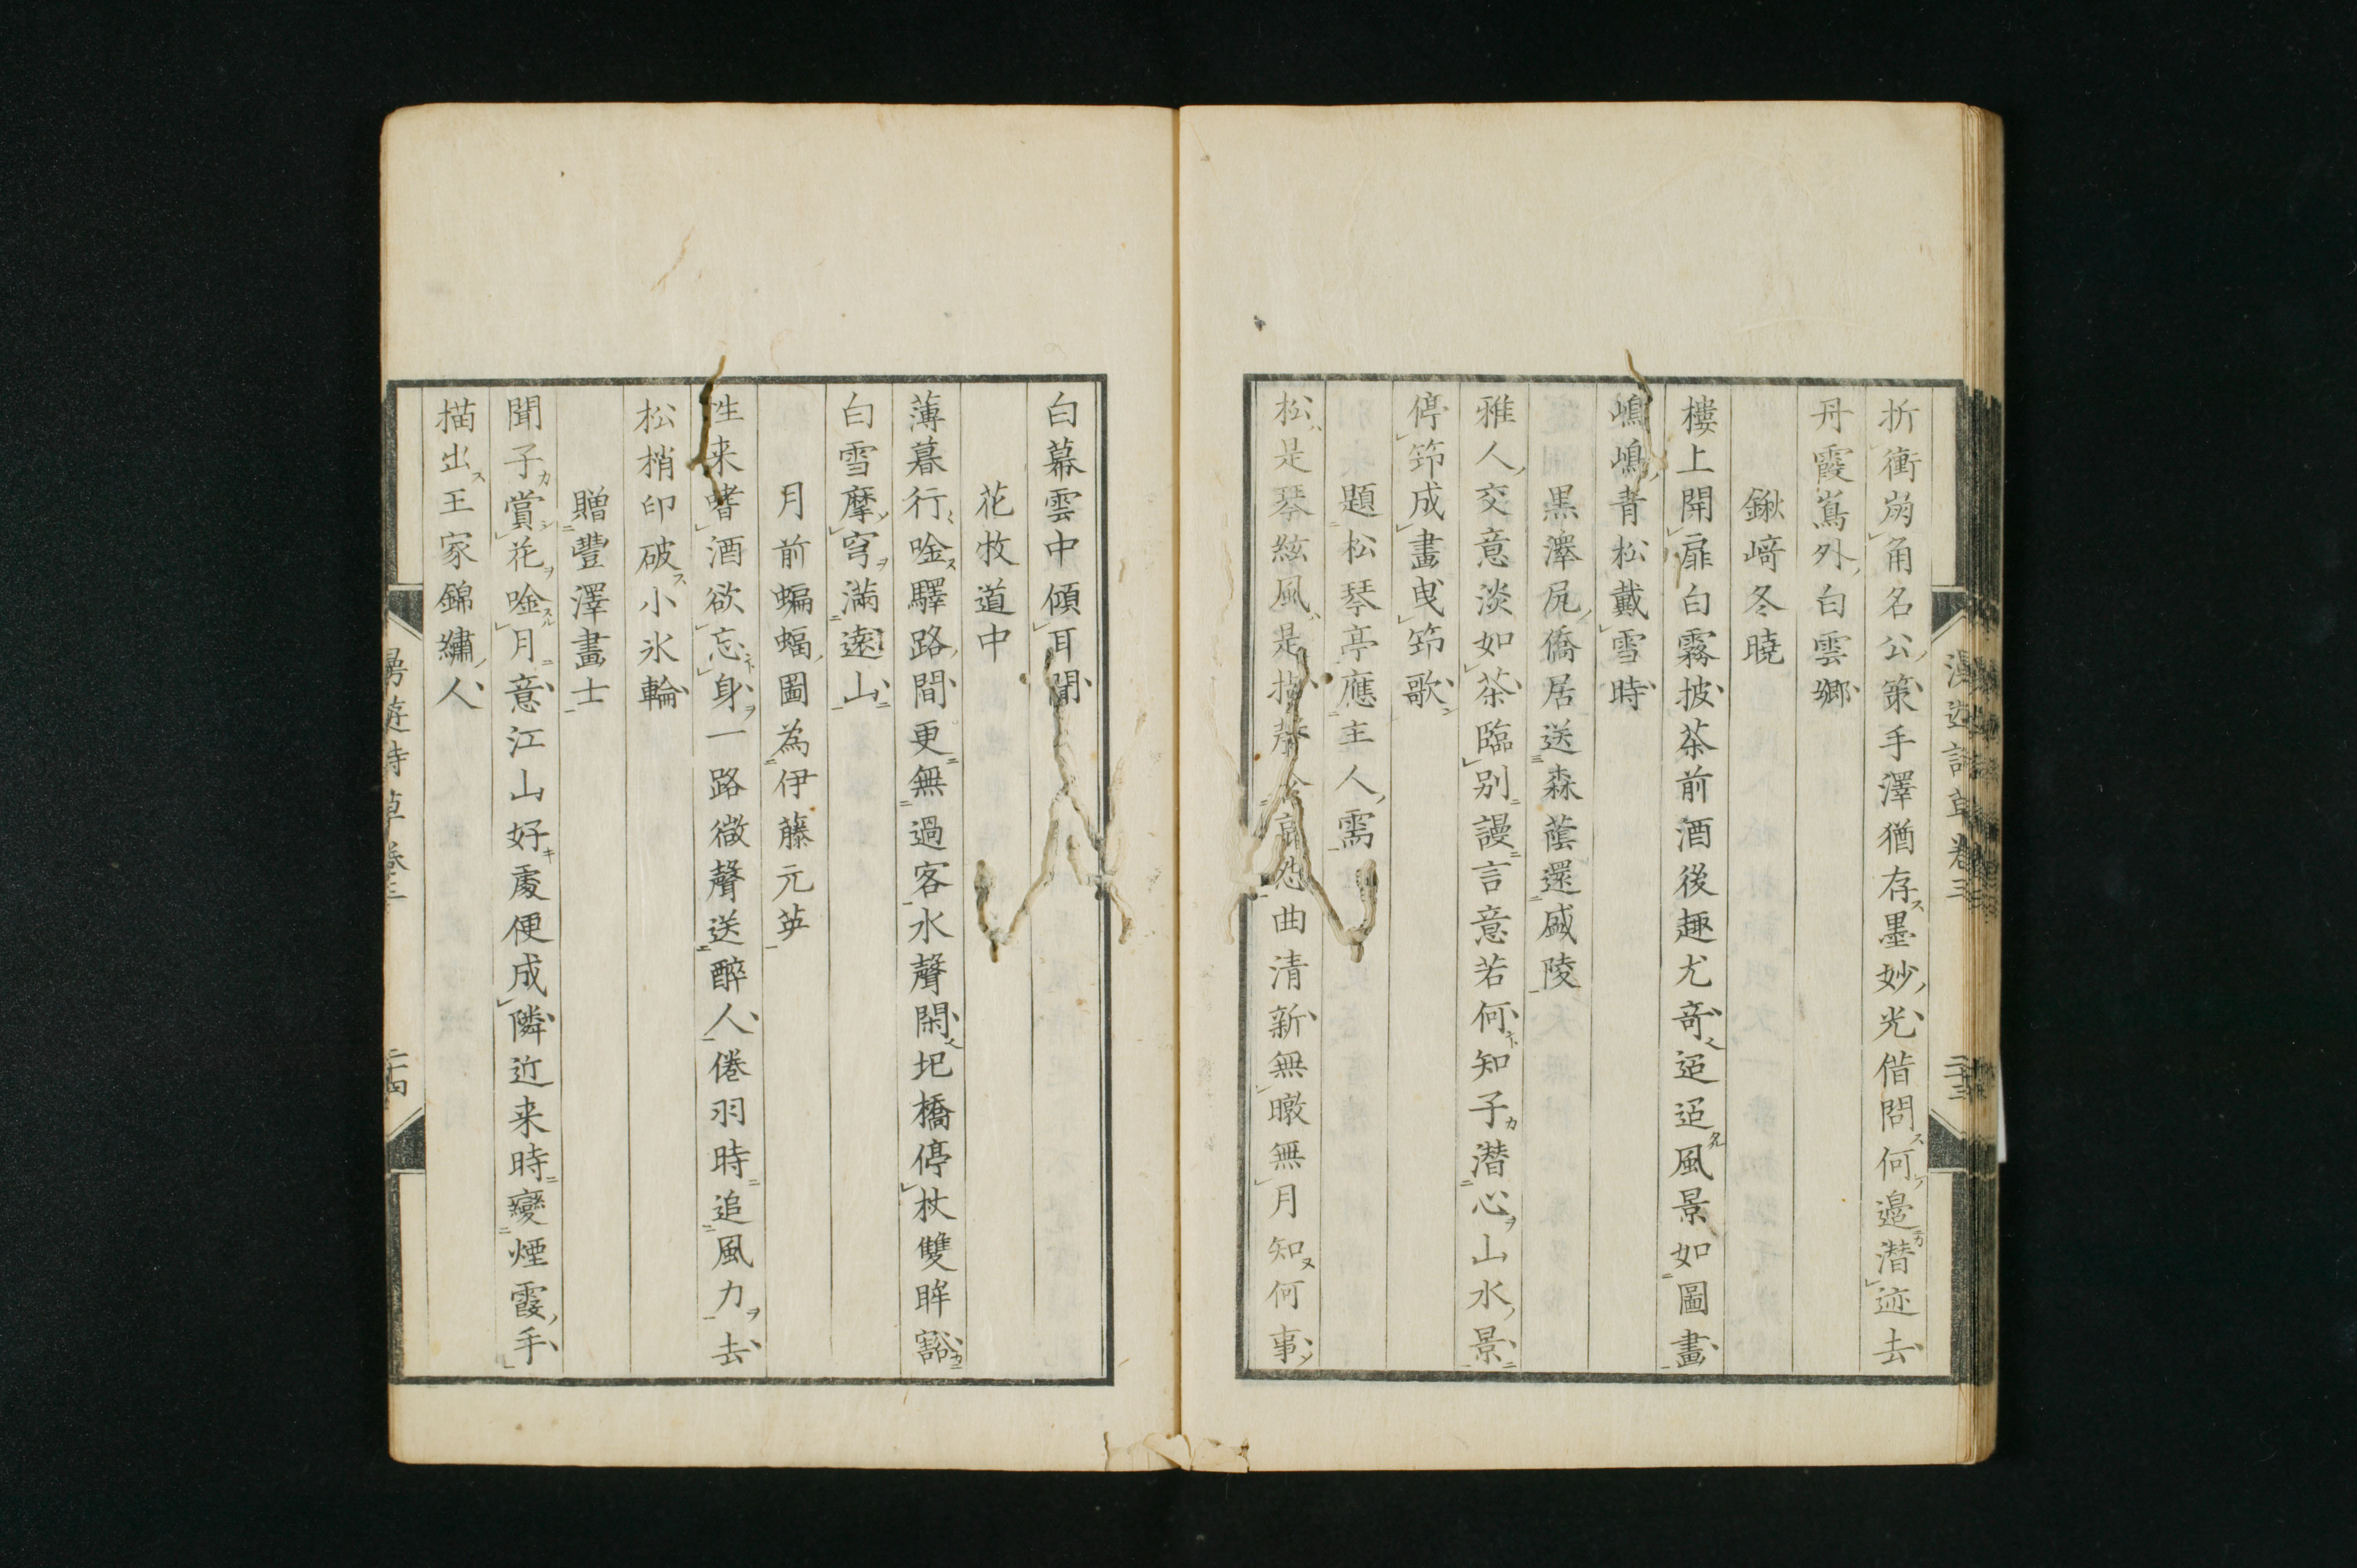 折衝崩角名公策手澤猶存墨妙光借問何邊潛迹去
丹霞蔦外白雲鄉
鍬﨑冬曉
樓上開扉白霧披茶前酒後趣尤奇迢迢風景如圖畫
嶋嶋青松戴雪時
黒澤尻僑居送森蔭還盛陵
雅人交意淡如茶臨別謾言意若何知子潛心山水景
停筇成畫曳筇歌
題松琴亭應主人需
松是琴絃風是指
曲清新無暾無月知何事
白幕雲中傾耳聞
花牧道中
薄暮行唫驛路間更無過客水聲閑圯橋停杖雙眸豁
白雪摩穹滿遠山
月前蝙蝠圖為伊藤元英
性来嗜酒欲忘身一路微聲送醉人倦羽時追風力去
松梢印破小氷輪
贈豐澤畫士
聞子賞花唫月意江山好處便成隣近来時變煙霞手
描出王家錦繡人